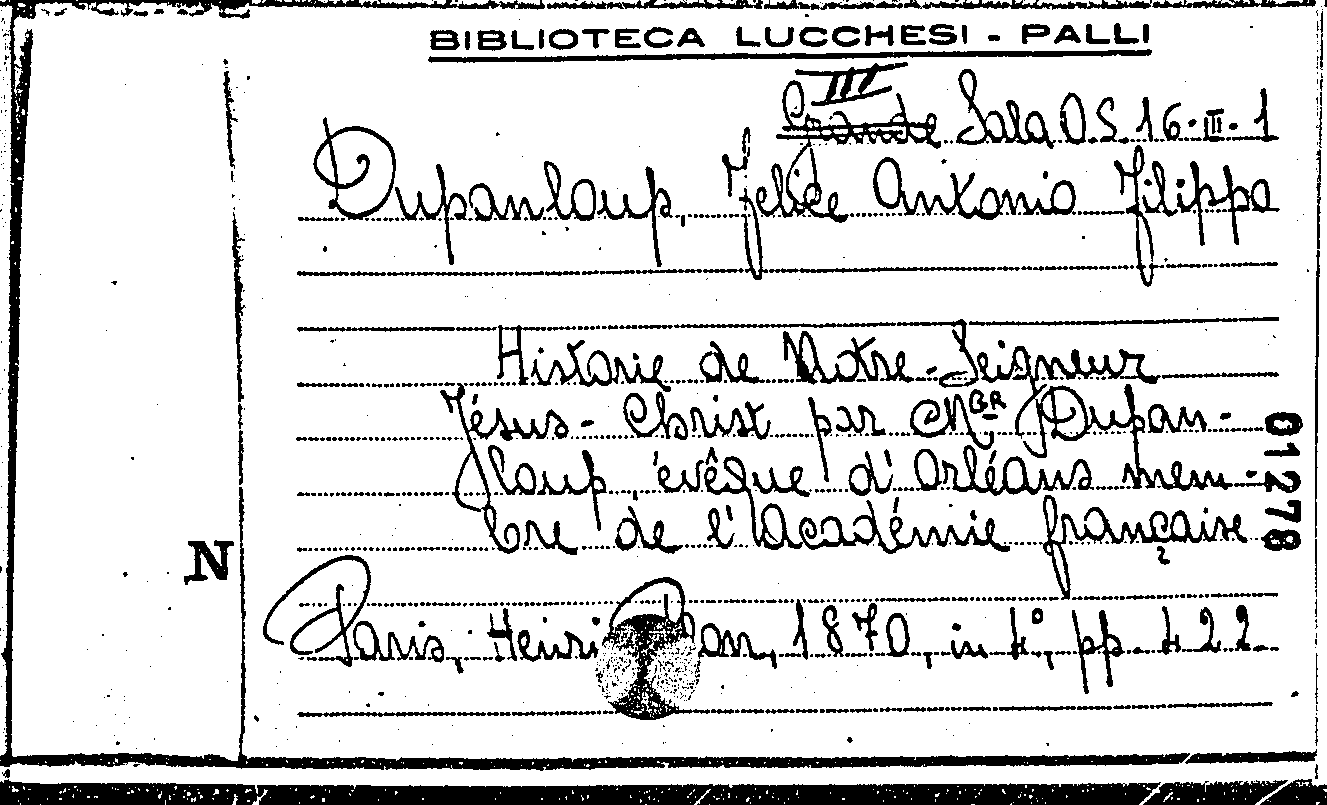 BIBLIOTECA LUCCHESI - PALLI
III
Grande Sala O.S. 16-III-1
Dupanloup, Felice Antonio Filippo
Historie de Notre-Seigneur
Jésus-Christ par MGR Dupan-
loup, évêque d'Orléans mem-
bre de l'Académie française
Paris, Henri Plon, 1870, in 4º, pp. 422
N
01278